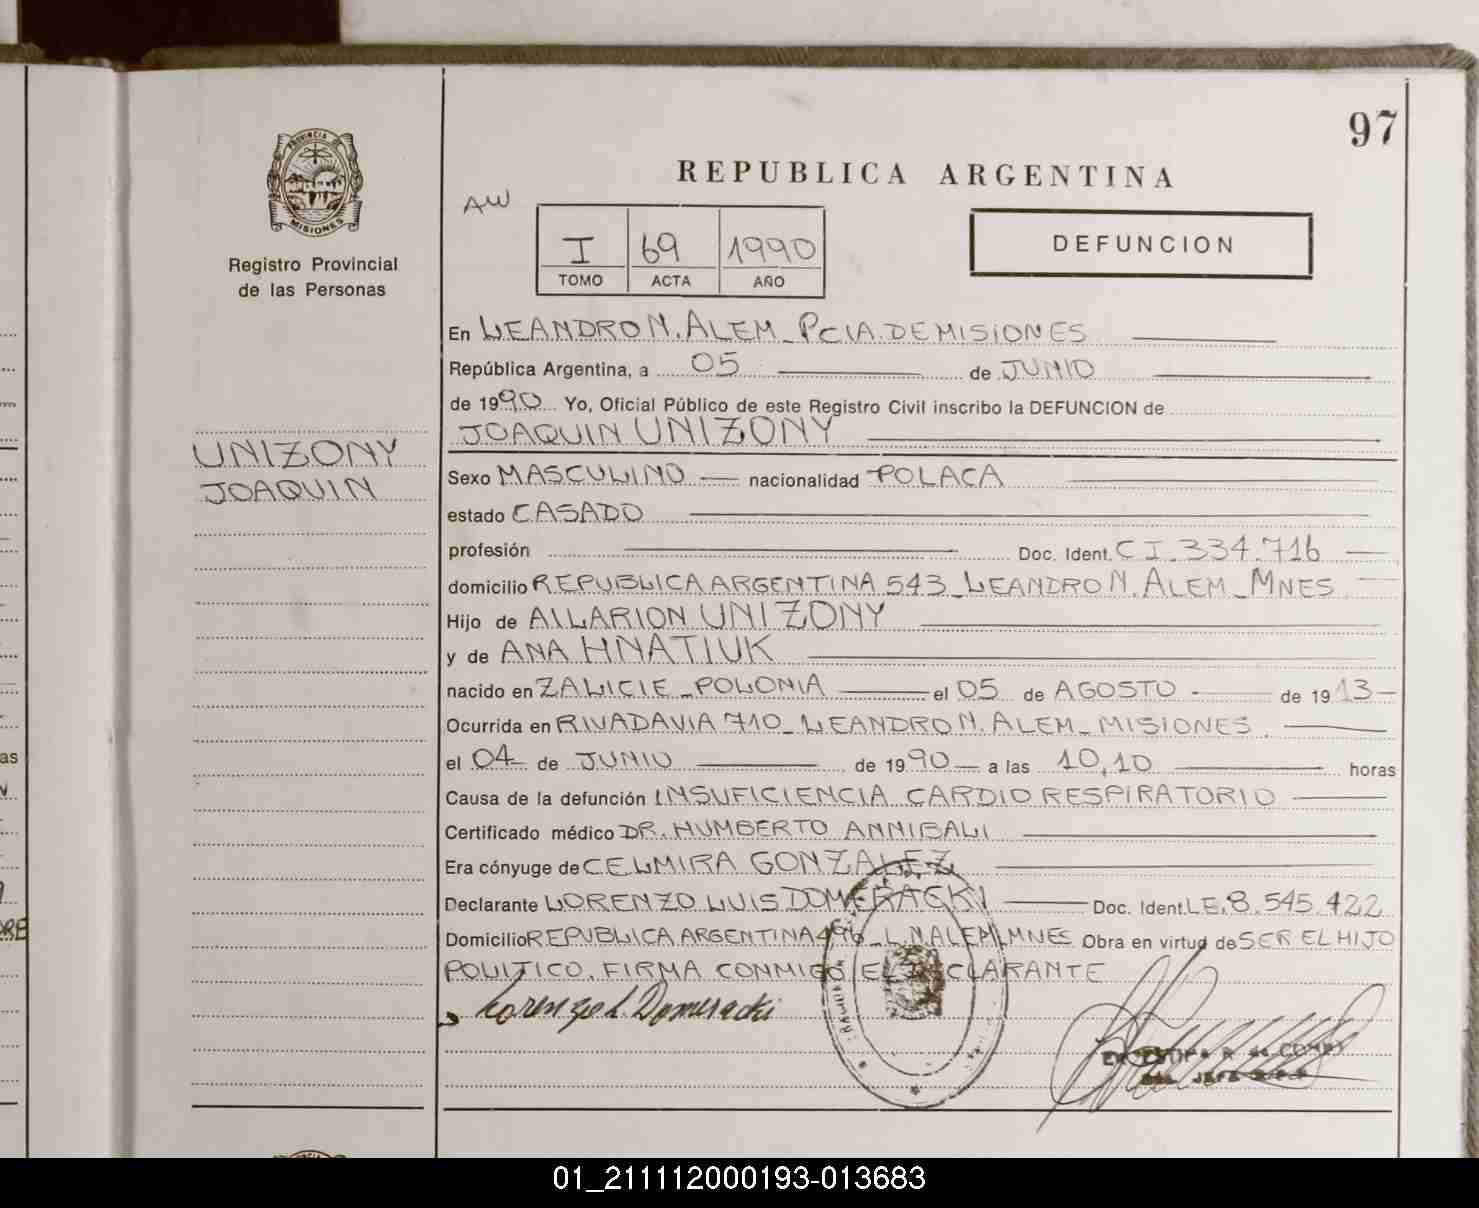 97
REPUBLICA ARGENTINA
PROVINCIA DE
MISIONES
AW
I 69 1990
TOMO ACTA AÑO
DEFUNCION
Registro Provincial
de las Personas
UNIZONY
JOAQUIN
En LEANDRO N. ALEM_PCIA. DE MISIONES
República Argentina, a 05 de JUNIO
de 1990 Yo, Oficial Público de este Registro Civil inscribo la DEFUNCION de
JOAQUIN UNIZONY
Sexo MASCULINO nacionalidad POLACA
estado CASADO
profesión Doc. Ident. C I. 334.716
domicilio REPUBLICA ARGENTINA 543_LEANDRO N. ALEM_MNES
Hijo de AILARION UNIZONY
y de ANA HNATIUK
nacido en ZALICIE_POLONIA el 05 de AGOSTO de 1913
Ocurrida en RIVADAVIA 710_LEANDRO N. ALEM_MISIONES.
el 04 de JUNIO de 1990 a las 10,10 horas
Causa de la defunción INSUFICIENCIA CARDIO RESPIRATORIO
Certificado médico DR. HUMBERTO ANNIBALI
Era cónyuge de CELMIRA GONZALEZ
Declarante LORENZO LUIS DOMERACKI Doc. Ident. LE. 8.545.422
Domicilio REPUBLICA ARGENTINA 496_L.N.ALEM_MNES Obra en virtud de SER EL HIJO
POLITICO. FIRMA CONMIGO EL DECLARANTE
Lorenzo L. Domeracki
01_211112000193-013683